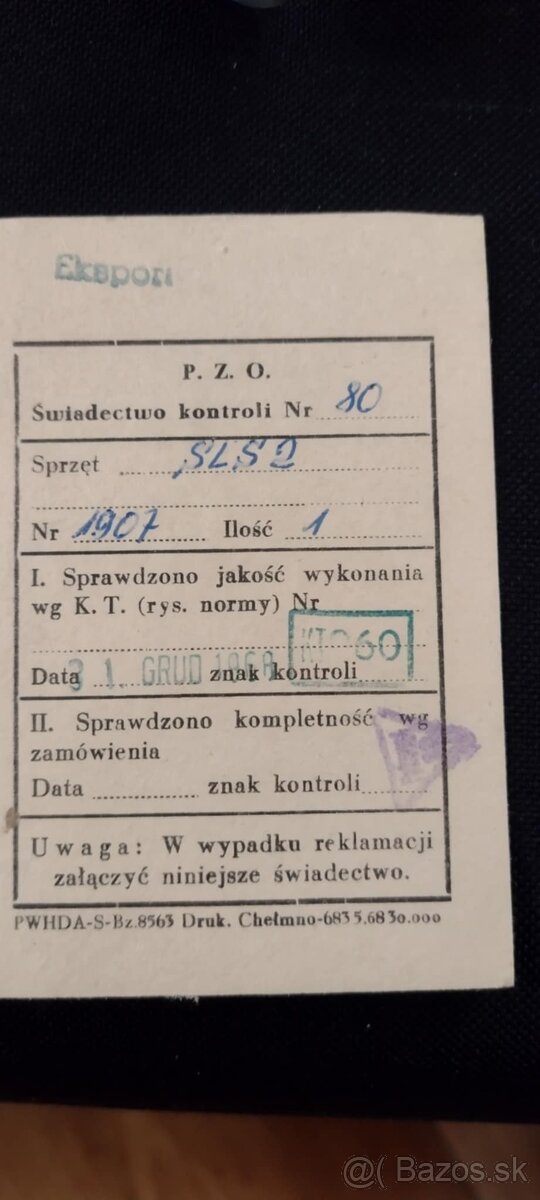 Eksport
P. Z. O.
Świadectwo kontroli Nr 80
Sprzęt SLS 2
Nr 1907 Ilość 1
I. Sprawdzono jakość wykonania
wg K. T. (rys. normy) Nr
Data 31. GRUD 1968 znak kontroli KT 060
II. Sprawdzono kompletność wg
zamówienia
Data znak kontroli
Uwaga: W wypadku reklamacji
załączyć niniejsze świadectwo.
PWHDA-S-Bz.8563 Druk. Chełmno-683 5.68 30.000
@( Bazos.sk